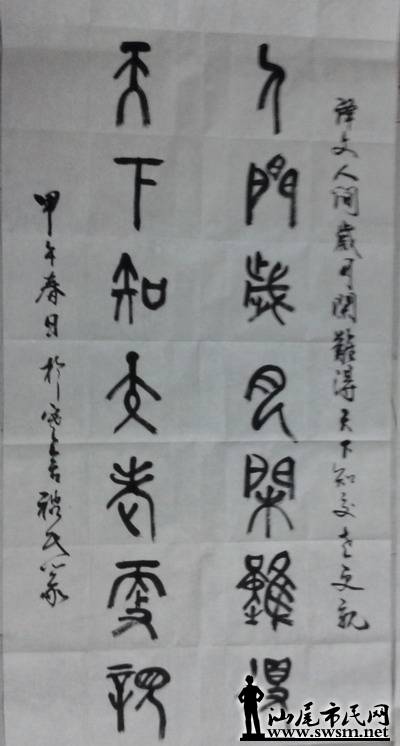 譯文人间歲月閑難得天下知交老更親
人間歲月閑難得
天下知交老更親
甲午春日於氏篆
汕尾市民网
www.swsm.net